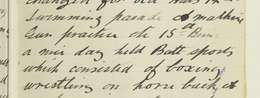 Swimming parade & mathine
Gun practice on 15th
a nice day held Batt sports
which consisted of boxing
wrestling on horse back &